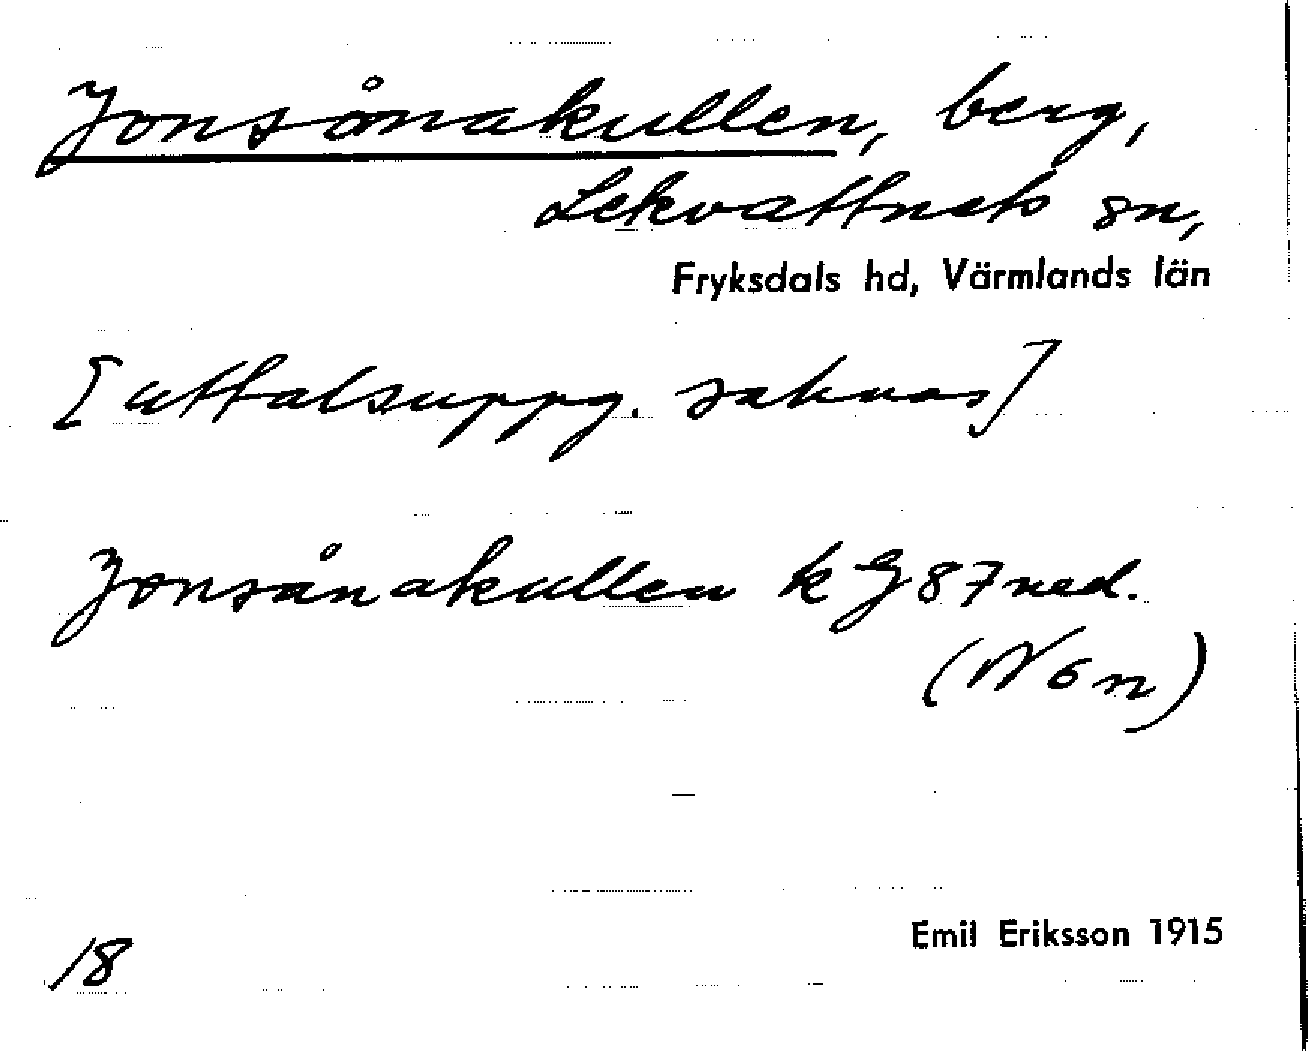 Jonsånakullen, berg,
Lekvattnets sn,
Fryksdals hd, Värmlands län
[uttalsuppg. saknas]
Jonsånakullen k G 87 ned.
(N6n)
Emil Eriksson 1915
18